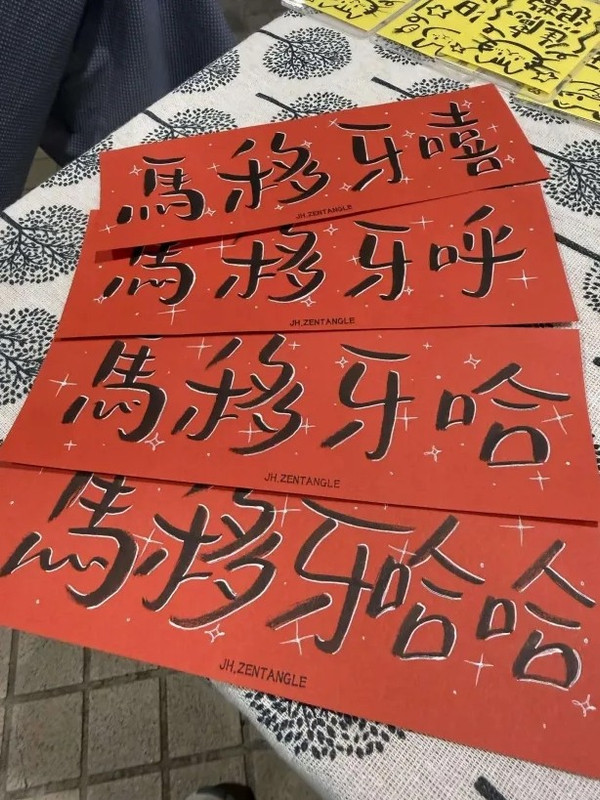 馬移牙嘻
JH.ZENTANGLE
馬移牙呼
JH.ZENTANGLE
馬移牙哈
JH.ZENTANGLE
馬移牙哈哈
JH.ZENTANGLE